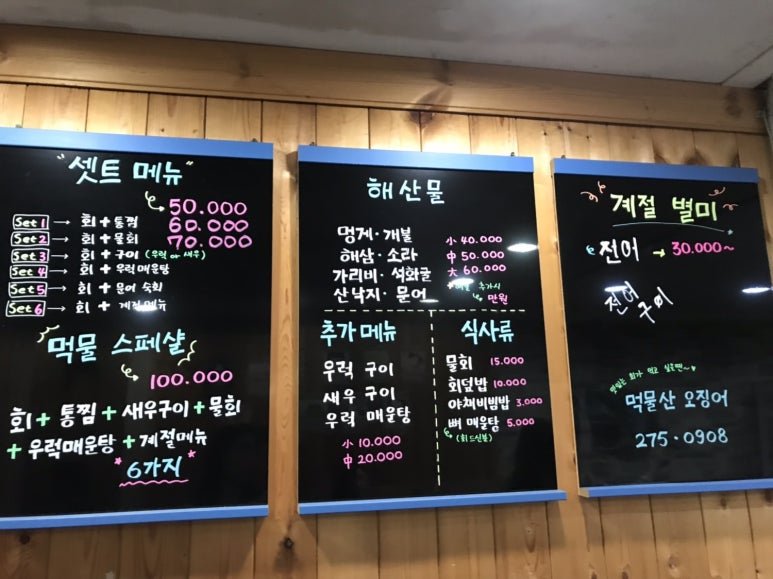 "셋트 메뉴"
50.000
60.000
70.000
Set 1 → 회 + 통찜
Set 2 → 회 + 물회
Set 3 → 회 + 구이 (우럭 or 새우)
Set 4 → 회 + 우럭매운탕
Set 5 → 회 + 문어 숙회
Set 6 → 회 + 계절메뉴
먹물 스페샬
100.000
회 + 통찜 + 새우구이 + 물회
+ 우럭매운탕 + 계절메뉴
*6가지*
해산물
멍게·개불
해삼·소라
가리비·석화굴
산낙지·문어
小 40.000
中 50.000
大 60.000
추가시
만원
추가메뉴
우럭 구이
새우 구이
우럭 매운탕
小 10.000
中 20.000
식사류
물회 15.000
회덮밥 10.000
야채비빔밥 3.000
뼈 매운탕 5.000
(회드신분)
계절 별미
전어 → 30.000~
전어
구이
맛있는 회가 먹고 싶을땐~
먹물산 오징어
275·0908